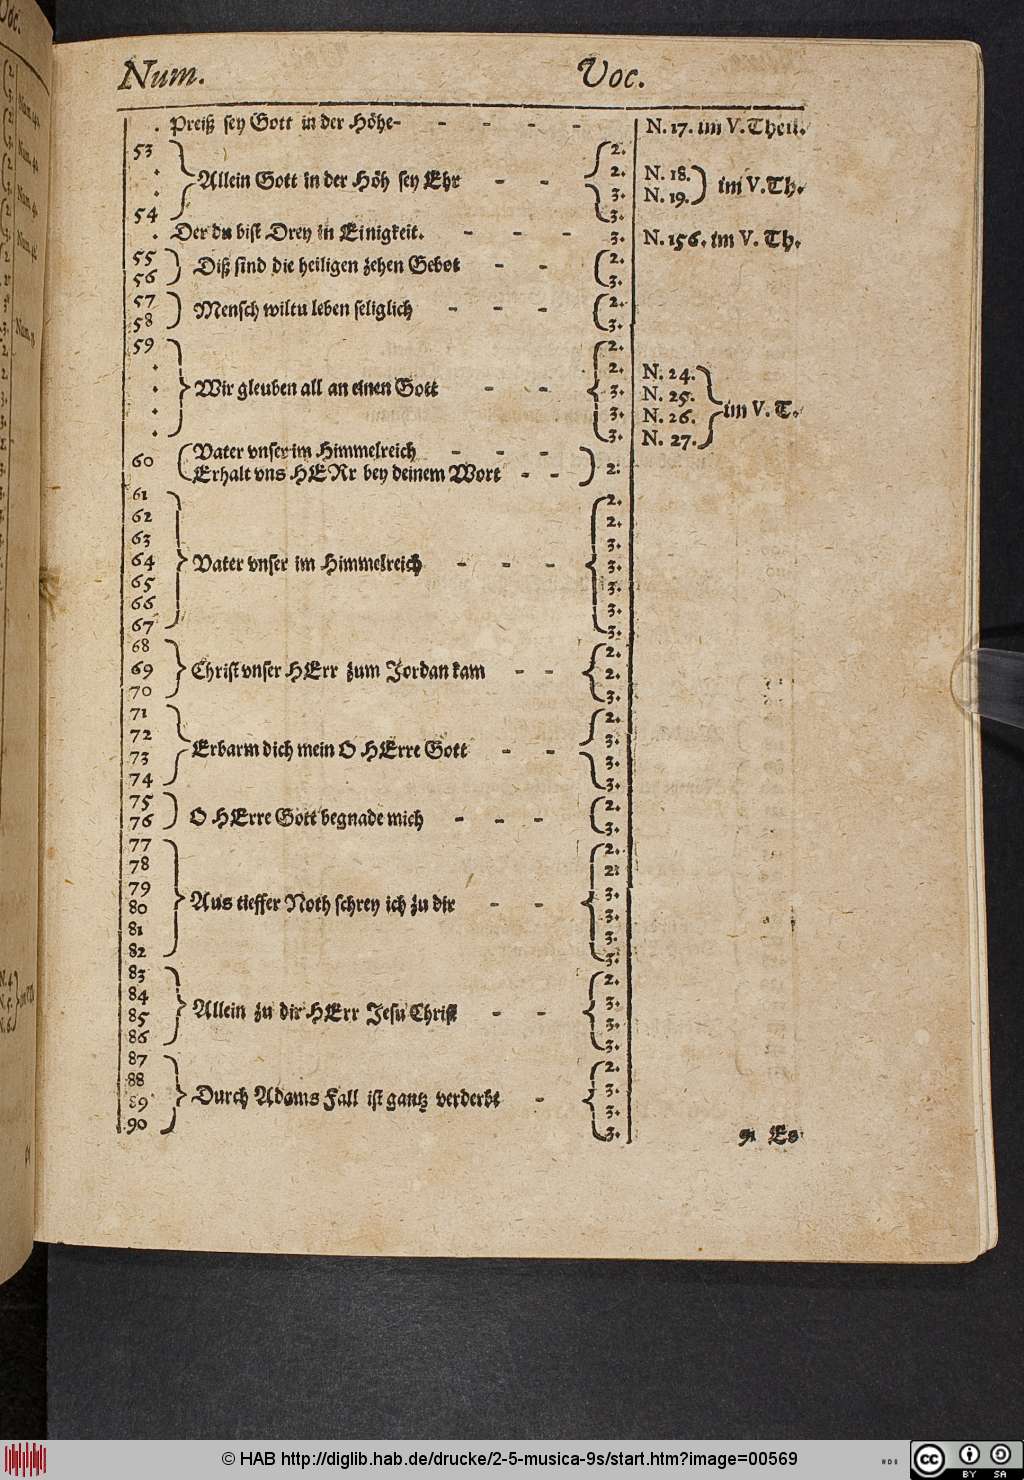 Num. Voc.
. Preiß sey Gott in der Höhe- - - - - N. 17. im V. Theil.
53 2.
. Allein Gott in der Höh sey Ehr - - 2. N. 18. im V. Th.
. 3. N. 19.
54 3.
. Der du bist Drey in Einigkeit. - - - 3. N. 156. im V. Th.
55 Diß sind die heiligen zehen Gebot - - 2.
56 3.
57 Mensch wiltu leben seliglich - - - 2.
58 3.
59 2.
. 2. N. 24.
. Wir gleuben all an einen Gott - - 3. N. 25. im V. T.
. 3. N. 26.
. 3. N. 27.
60 Vater vnser im Himmelreich - - - 2.
Erhalt vns HERr bey deinem Wort - -
61 2.
62 2.
63 3.
64 Vater vnser im Himmelreich - - - 3.
65 3.
66 3.
67 3.
68 2.
69 Christ vnser HErr zum Jordan kam - - 2.
70 3.
71 2.
72 Erbarm dich mein O HErre Gott - - 3.
73 3.
74 3.
75 O HErre Gott begnade mich - - - 2.
76 3.
77 2.
78 2.
79 Aus tieffer Noth schrey ich zu dir - - 3.
80 3.
81 3.
82 3.
83 2.
84 Allein zu dir HErr Jesu Christ - - 3.
85 3.
86 3.
87 2.
88 Durch Adams Fall ist gantz verderbt - 3.
89 3.
90 3.
91 Es
© HAB http://diglib.hab.de/drucke/2-5-musica-9s/start.htm?image=00569
cc BY SA